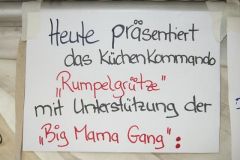 Heute präsentiert
das Küchenkommando
"Rumpelgrütze"
mit Unterstützung der
"Big Mama Gang":